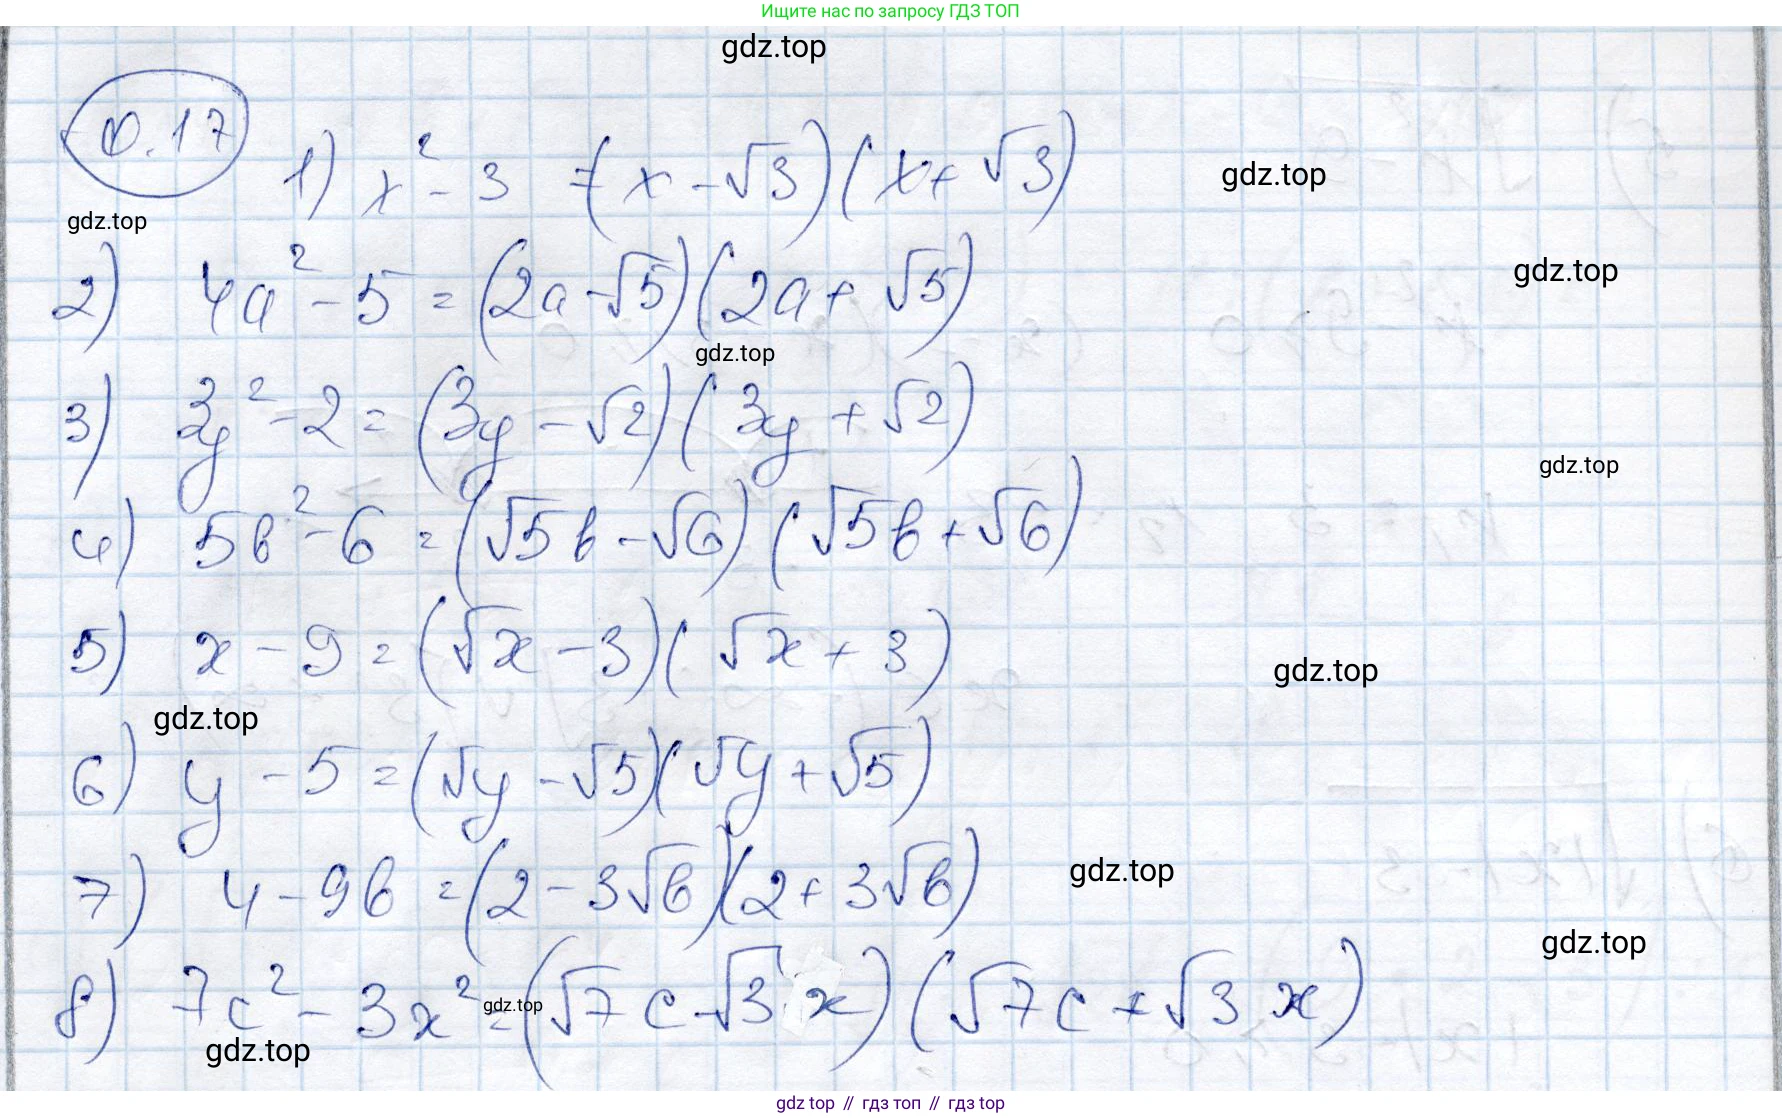 Ищите нас по запросу ГДЗ ТОП
gdz.top
0.17
1) x² - 3 = (x - √3)(x + √3)
gdz.top
gdz.top
2) 4a² - 5 = (2a - √5)(2a + √5)
gdz.top
gdz.top
3) 3y² - 2 = (3y - √2)(3y + √2)
gdz.top
4) 5b² - 6 = (√5b - √6)(√5b + √6)
5) x - 9 = (√x - 3)(√x + 3)
gdz.top
gdz.top
6) y - 5 = (√y - √5)(√y + √5)
7) 4 - 9b = (2 - 3√b)(2 + 3√b)
gdz.top
gdz.top
8) 7c² - 3x² = (√7c - √3x)(√7c + √3x)
gdz.top
gdz.top
gdz top // гдз топ // гдз top